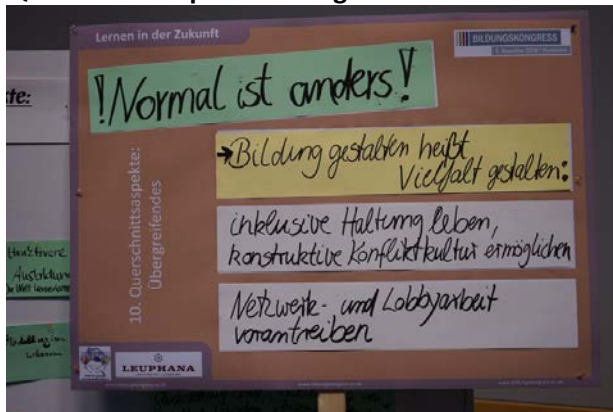 Lernen in der Zukunft
BILDUNGSKONGRESS
!Normal ist anders!
te:
10. Querschnittsaspekte:
Übergreifendes
→Bildung gestalten heißt
Vielfalt gestalten:
inklusive Haltung leben,
konstruktive Konfliktkultur ermöglichen
Netzwerk- und Lobbyarbeit
vorantreiben
Ausbildung
LEUPHANA